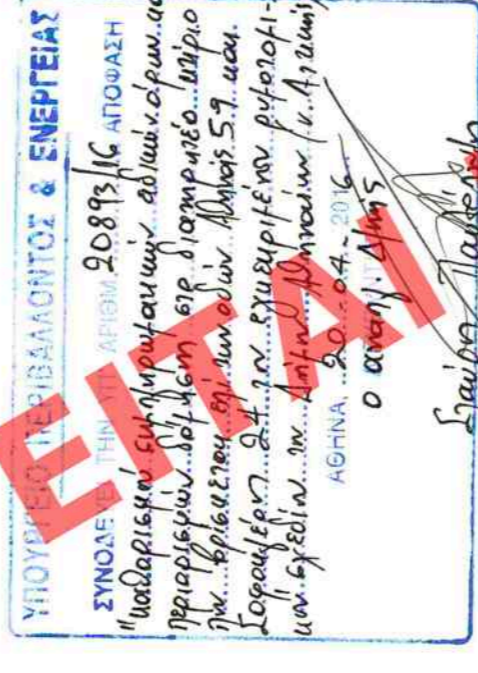 ΥΠΟΥΡΓΕΙΟ ΠΕΡΙΒΑΛΛΟΝΤΟΣ & ΕΝΕΡΓΕΙΑΣ
ΣΥΝΟΔΕΥΕΙ ΤΗΝ ΥΠ ΑΡΙΘΜ. 20893/16 ΑΠΟΦΑΣΗ
"καθορισμού συμπληρωματικών ειδικών όρων και
περιορισμών δόμησης στο διατηρητέο κτίριο
που βρίσκεται επί των οδών Αθηνάς 59 και
Σαφακηέρη 24 του εγκεκριμένου ρυμοτομι-
κού σχεδίου του Δήμου Αθηναίων (ν. Αττικής)
ΑΘΗΝΑ, 20-04-2016
Ο αναπλ. Δ/ντής
Σταύρος
ΕΙΤΑΙ